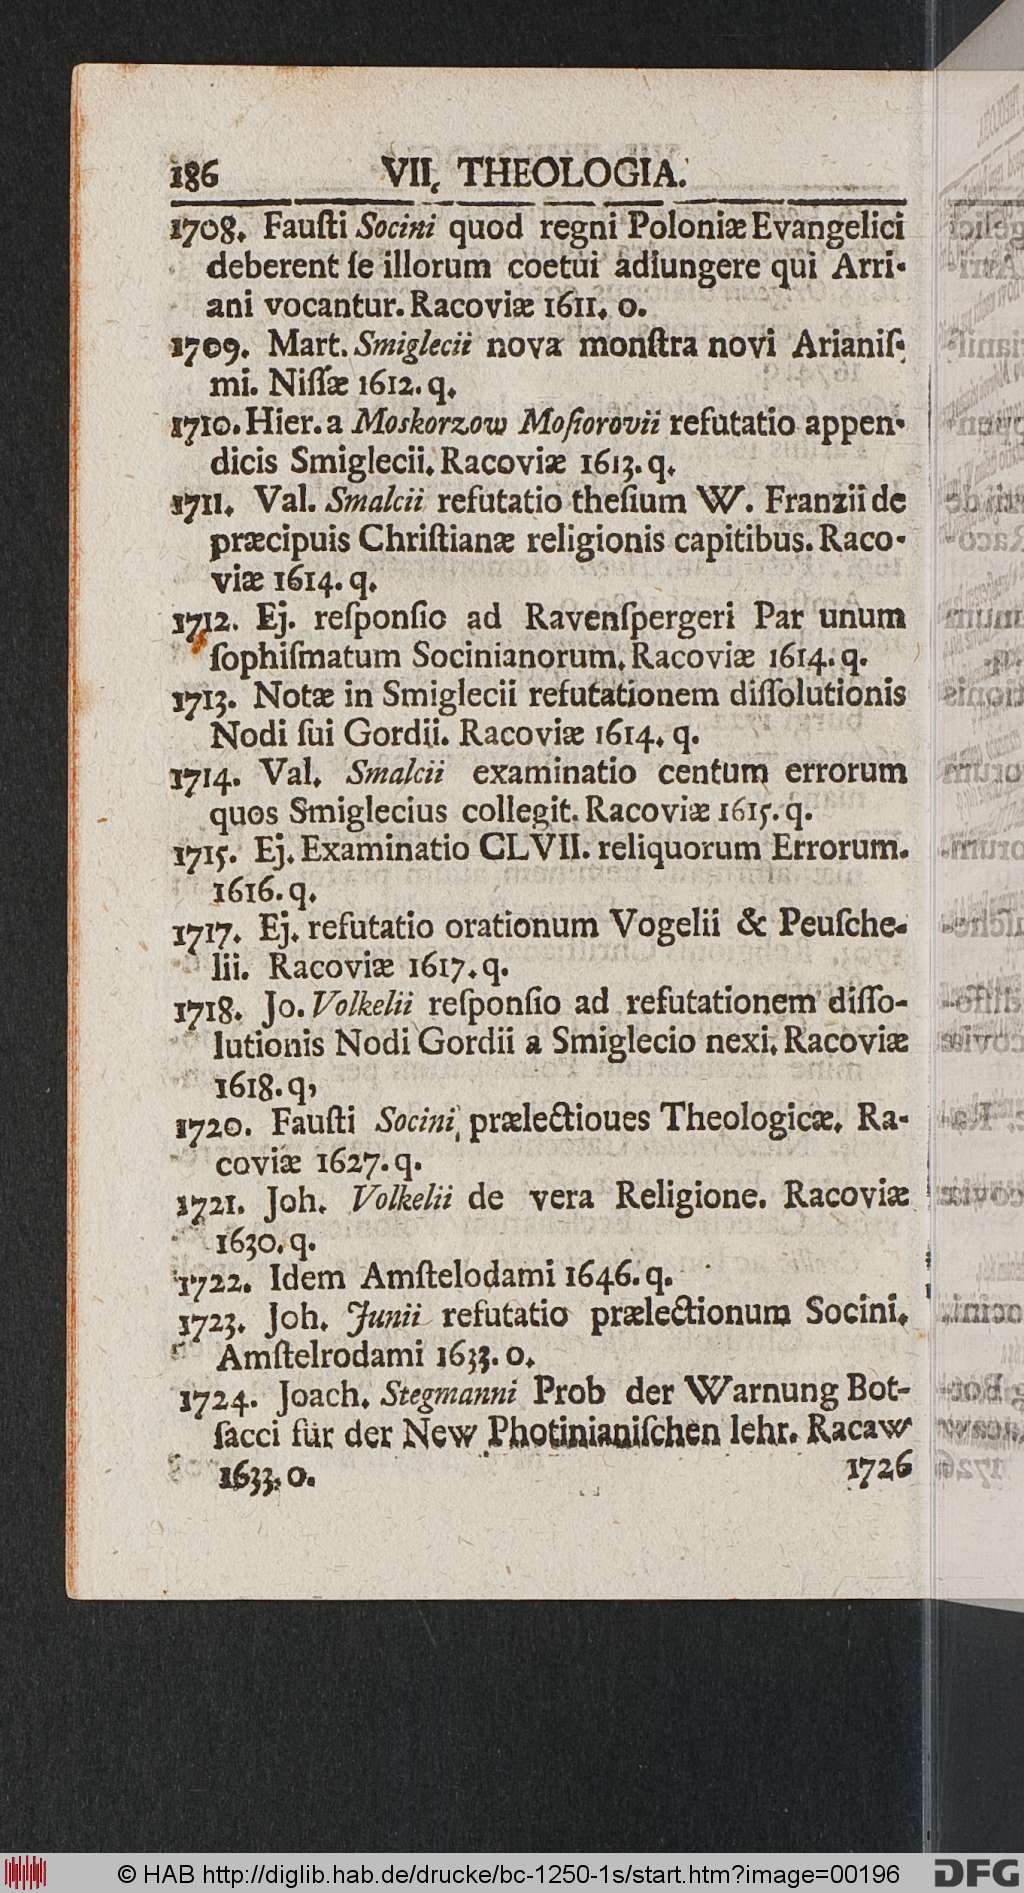 186 VII. THEOLOGIA.
1708. Fauſti Socini quod regni Poloniæ Evangelici
deberent ſe illorum coetui adiungere qui Arri-
ani vocantur. Racoviæ 1611. o.
1709. Mart. Smiglecii nova monſtra novi Arianiſ-
mi. Niſſæ 1612. q.
1710. Hier. a Moskorzow Moſiorovii refutatio appen-
dicis Smiglecii. Racoviæ 1613. q.
1711. Val. Smalcii refutatio theſium W. Franzii de
præcipuis Chriſtianæ religionis capitibus. Raco-
viæ 1614. q.
1712. Ej. reſponſio ad Ravenſpergeri Par unum
ſophiſmatum Socinianorum. Racoviæ 1614. q.
1713. Notæ in Smiglecii refutationem diſſolutionis
Nodi ſui Gordii. Racoviæ 1614. q.
1714. Val. Smalcii examinatio centum errorum
quos Smiglecius collegit. Racoviæ 1615. q.
1715. Ej. Examinatio CLVII. reliquorum Errorum.
1616. q.
1717. Ej. refutatio orationum Vogelii & Peuſche-
lii. Racoviæ 1617. q.
1718. Jo. Volkelii reſponſio ad refutationem diſſo-
lutionis Nodi Gordii a Smiglecio nexi. Racoviæ
1618. q,
1720. Fauſti Socini prælectioues Theologicæ. Ra-
coviæ 1627. q.
1721. Joh. Volkelii de vera Religione. Racoviæ
1630. q.
1722. Idem Amſtelodami 1646. q.
1723. Joh. Junii refutatio prælectionum Socini.
Amſtelrodami 1633. o.
1724. Joach. Stegmanni Prob der Warnung Bot-
ſacci für der New Photinianiſchen lehr. Racaw
1633. o.
1726
© HAB http://diglib.hab.de/drucke/bc-1250-1s/start.htm?image=00196
DFG